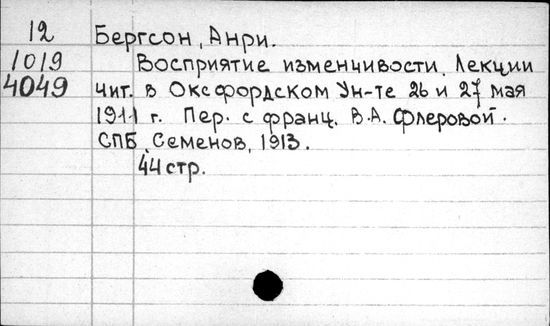 12 Бергсон, Анри.
1019 Восприятие изменчивости. Лекции
4049 чит. в Оксфордском Ун-те 26 и 27 мая
1911 г. Пер. с франц. В.А. Флеровой.
СПБ, Семенов, 1913.
44 стр.